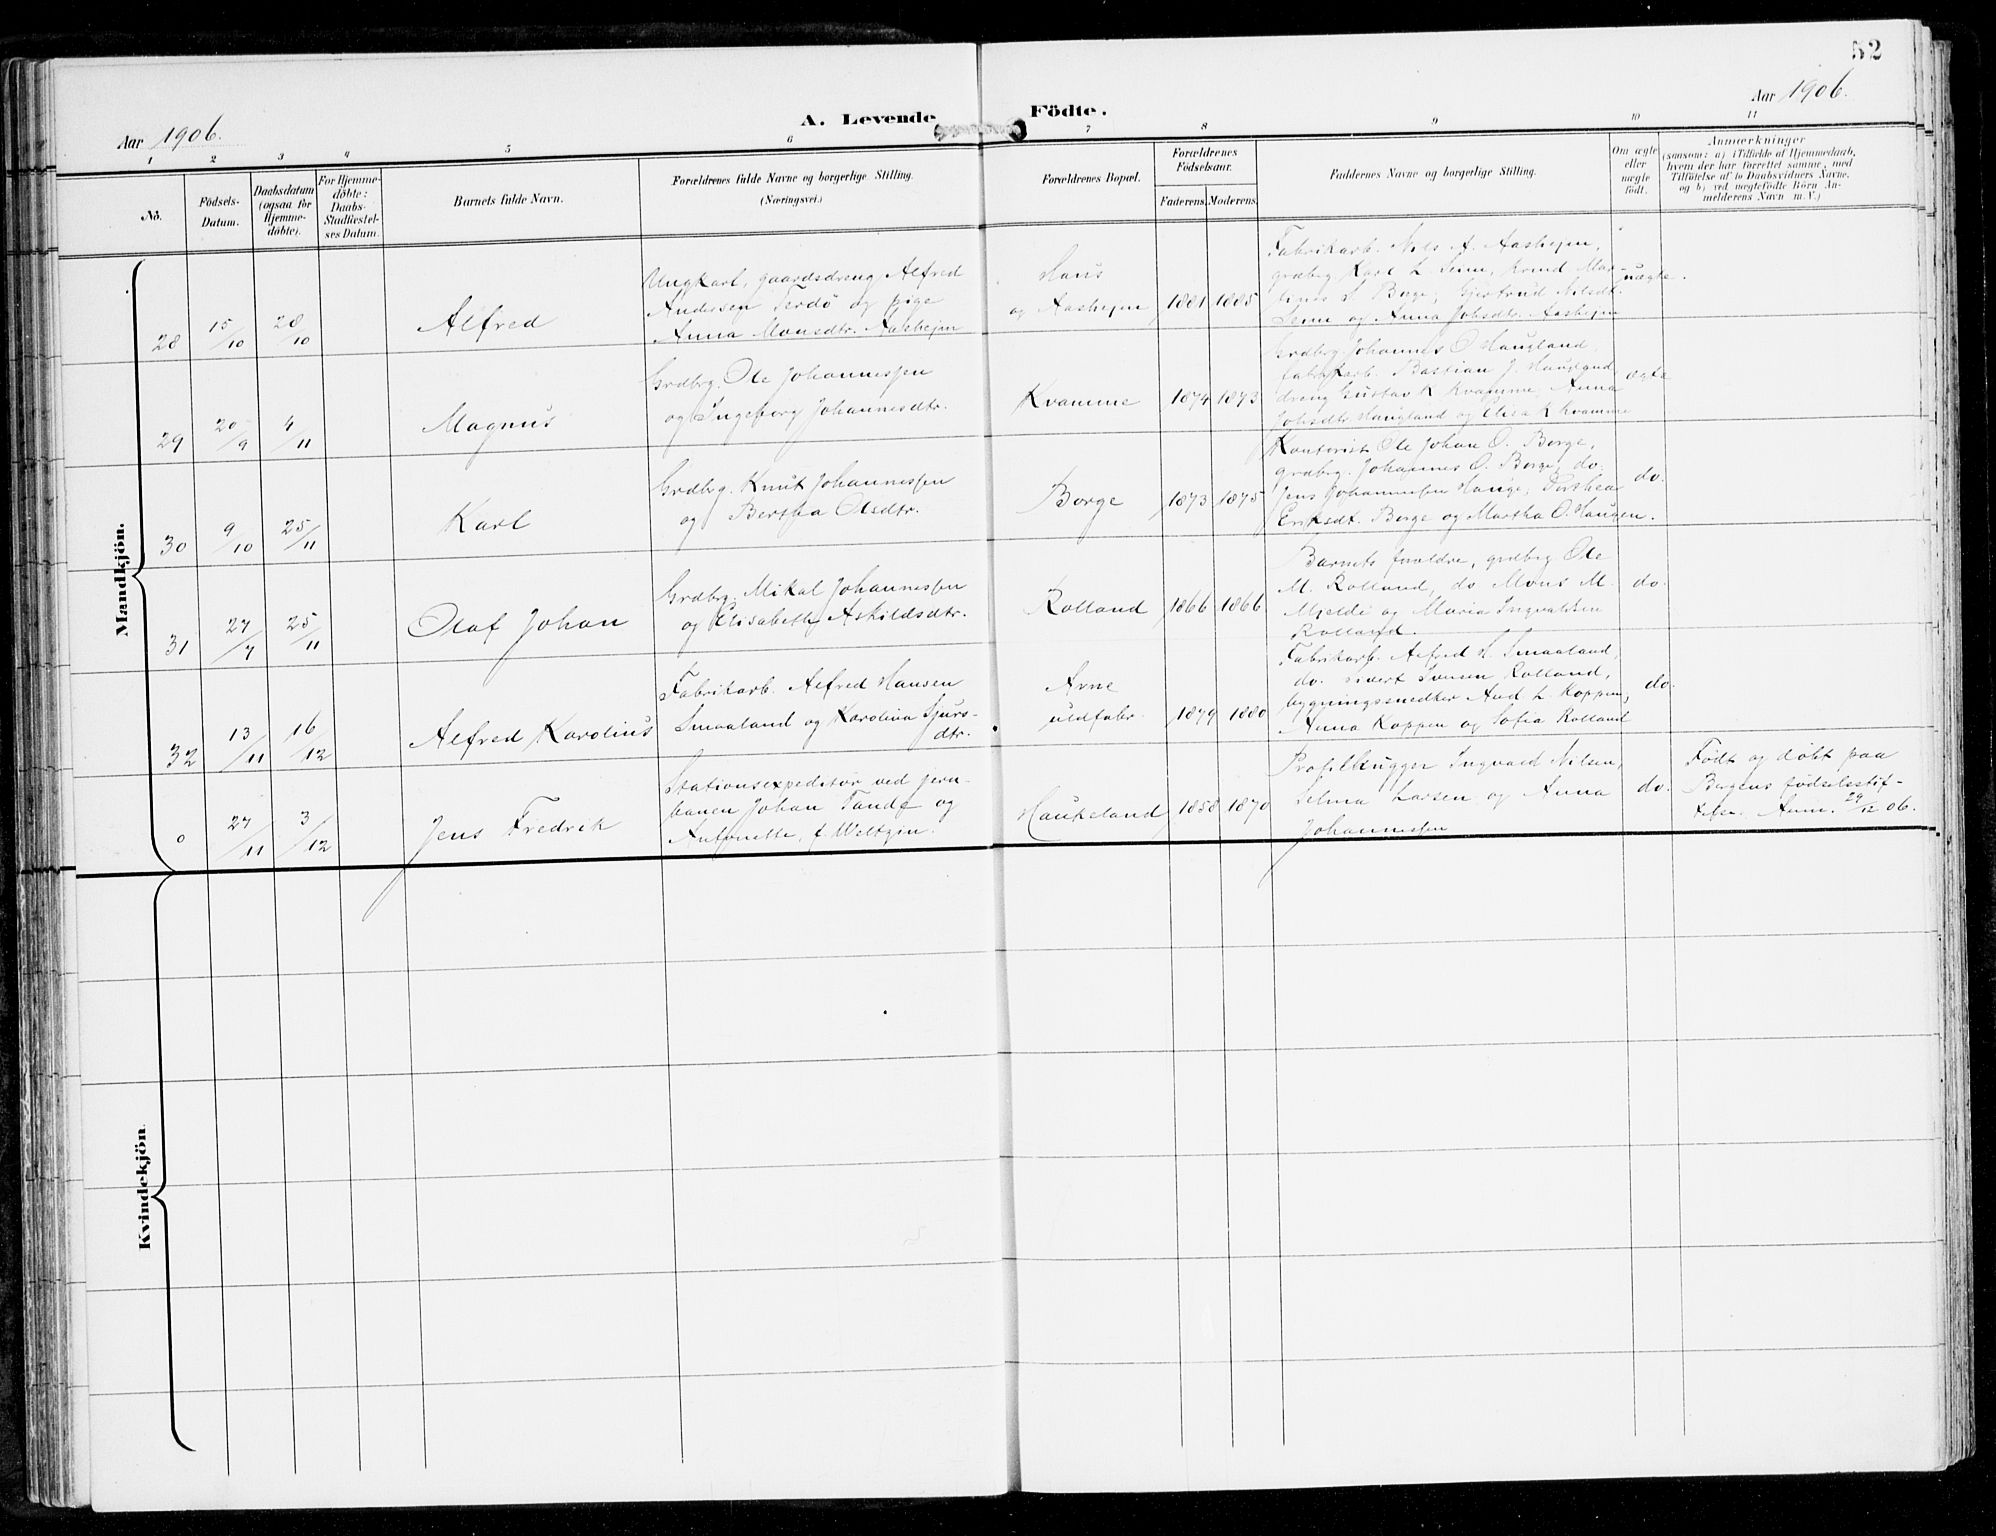 52
Aar 1906.
A. Levende Födte.
Aar 1906.
1 2 3 4 5 6 7 8 9 10 11
No.
Födsels-
Datum.
Daabsdatum
(ogsaa for
Hjemme-
döbte).
For Hjemme-
döbte:
Daabs-
Stadfæstel-
ses Datum.
Barnets fulde Navn.
Forældrenes fulde Navne og borgerlige Stilling.
(Næringsvei.)
Forældrenes Bopæl.
Forældrenes
Födselsaar.
Faderens. Moderens.
Faddernes Navne og borgerlige Stilling.
Om ægte
eller
uægte
födt.
Anmærkninger
(saasom: a) i Tilfælde af Hjemmedaab,
hvem der har forrettet samme, med
Tilföielse af to Daabsvidners Navne,
og b) ved uægtefödte Börn An-
melderens Navn m. V.)
Mandkjön.
28 15/10 28/10 Alfred
Ungkarl, gaardsdreng Alfred
Andersen og pige
Anna Monsdtr. Aashejm
Haus
og Aashejm 1881 1885
Fabrikarb. Nils A. Aashejm,
grdbrg Karl L. Senn, kvind Mar-
Borge, Gjertrud Nilsdt.
og Anna Johsdtr. Aashejm
uægte.
29 20/9 4/11 Magnus
Grdbrg. Ole Johannessen
og Ingeborg Johannesdtr.
Kvamme 1874 1873
Grdbrg Johannes O Haugland,
fabrikarb. Bastian J. Haugland
dreng Gustav K Kvamme, Anna
Johsdtr Haugland og Elisa K Kvamme
ægte
30 9/10 25/11 Karl
Grdbrg. Knut Johannessen
og Bertha Olsdtr.
Borge 1873 1875
Kontorist Ole Johan O. Borge,
grdbrg. Johannes O. Borge, do.
Jens Johannessen Hauge,
Eriksdt. Borge og Martha O. Haugen.
do.
31 27/7 25/11 Olaf Johan
Grdbrg. Mikal Johannessen
og Elisabeth Askildsdtr.
Rolland 1866 1866
Barnets forældre, grdbrg Ole
M. Rolland, do Mons M.
Mjelde og Maria Ingvaldsen
Rolland.
do.
32 13/11 16/12 Alfred Karolius
Fabrikarb. Alfred Hansen
Smaaland og Karolina Sjurs-
dtr.
Arne
uldfabr. 1879 1880
Fabrikarb. Alfred H. Smaaland,
do. Sivert Svensen Rolland,
bygningssnedker And L Koppen,
Anna Koppen og Sofia Rolland
do.
0 27/11 3/12 Jens Fredrik
Stationsexpeditør ved jern-
banen Johan Tande og
Antonette, f. Weltzin.
Haukeland 1858 1870
Profilhugger Ingvald Nilsen,
Selma Larsen og Anna
Johannessen
do.
Født og døbt paa
Bergens fødselsstif-
telse. Anm. 29/12 06.
Kvindekjön.